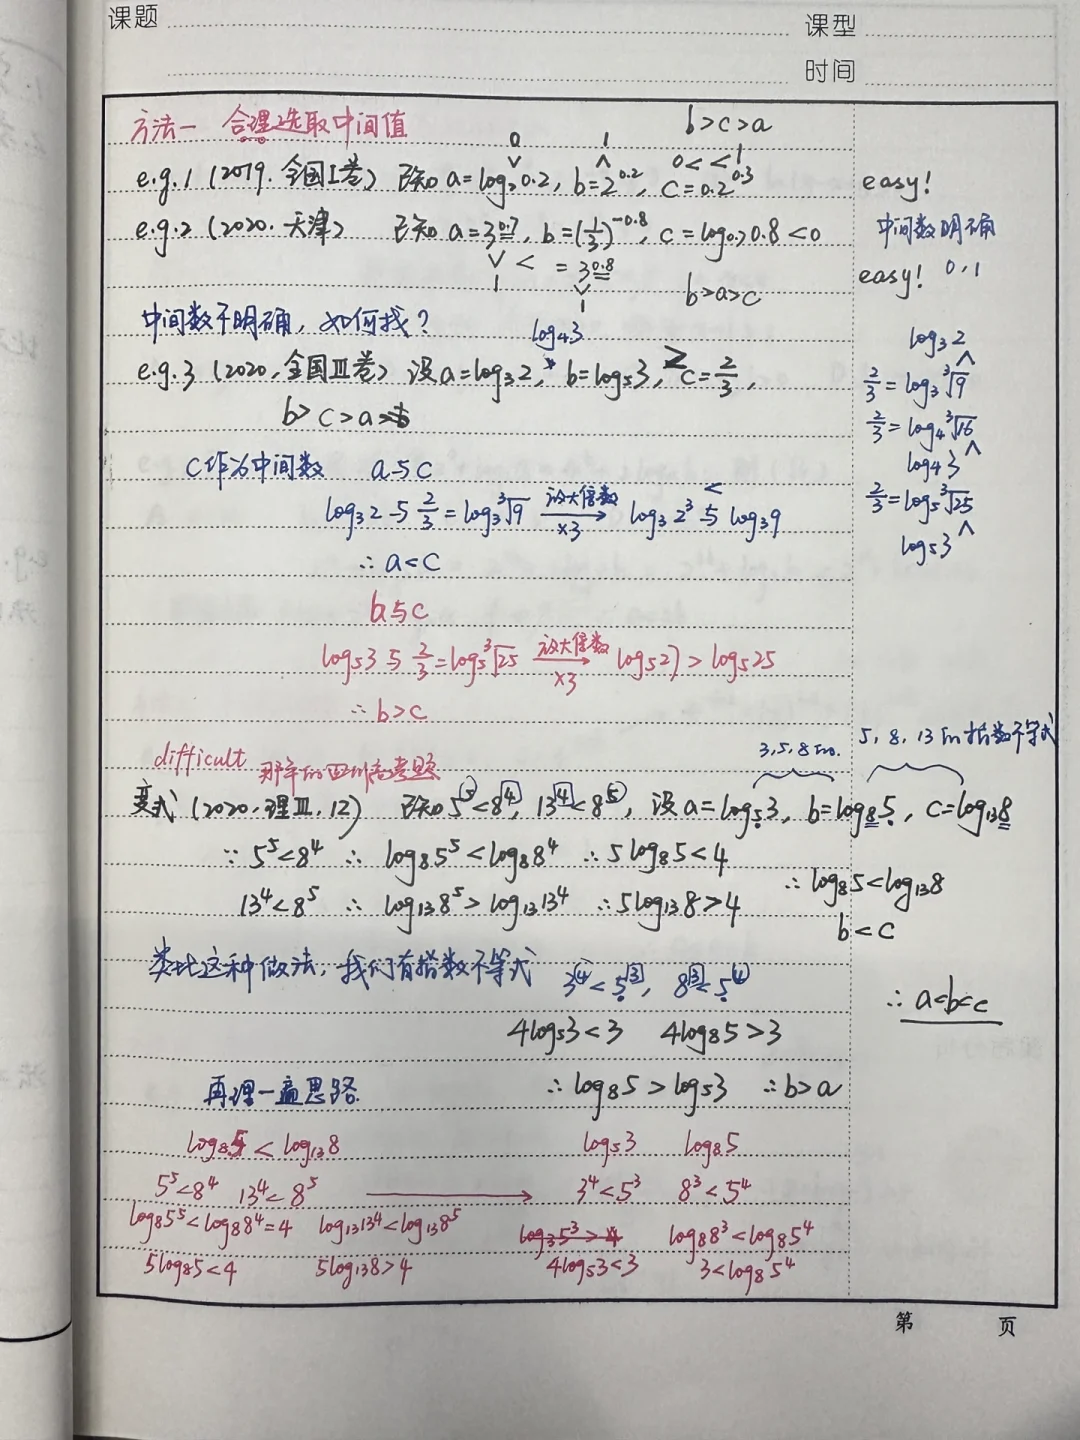 课题
课型
时间
方法一 合理选取中间值
b>c>a
0 1 0< <1
e.g.1 (2019.全国I卷) 已知 a=log₂0.2, b=2^0.2, c=0.2^0.3
easy!
e.g.2 (2020.天津) 已知 a=3^0.7, b=(1/3)^-0.8, c=log₀.₇0.8<0
中间数明确
∨ < =3^0.8
easy! 0,1
1 ∨ b>a>c
1
中间数不明确,如何找?
log₄3
log₃2
e.g.3 (2020,全国Ⅲ卷) 设a=log₃2, b=log₅3, c=2/3,
∧
2/3=log₃∛9
b>c>a
2/3=log₄∛16
∧
C作为中间数 a与c
log₄3
log₃2与2/3=log₃∛9 放大倍数 ×3 → log₃2³ 与 log₃9
<
2/3=log₅∛25
∧
log₅3
∴a<c
b与c
log₅3与2/3=log₅∛25 放大倍数 ×3 → log₅27>log₅25
∴b>c
difficult 那年的四川高考题
3,5,8 Tn.
5,8,13 Tn指数不等式
变式 (2020.理Ⅲ.12) 已知5⁵<8⁴, 13⁴<8⁵, 设a=log₅3, b=log₈5, c=log₁₃8
∵5⁵<8⁴ ∴log₈5⁵<log₈8⁴ ∴5log₈5<4
∴log₈5<log₁₃8
13⁴<8⁵ ∴log₁₃8⁵>log₁₃13⁴ ∴5log₁₃8>4
b<c
类比这种做法,我们有指数不等式 3⁴<5³, 8³<5⁴
∴a<b<c
4log₅3<3 4log₈5>3
再理一遍思路
∴log₈5>log₅3 ∴b>a
log₈5<log₁₃8 log₅3 log₈5
5⁵<8⁴ 13⁴<8⁵ → 3⁴<5³ 8³<5⁴
log₈5⁵<log₈8⁴=4 log₁₃13⁴<log₁₃8⁵ log₃5³>4 log₈8³<log₈5⁴
5log₈5<4 5log₁₃8>4 4log₅3<3 3<log₈5⁴
第 页